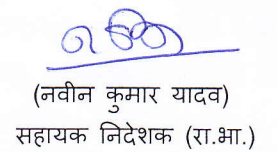 (नवीन कुमार यादव)
सहायक निदेशक (रा.भा.)